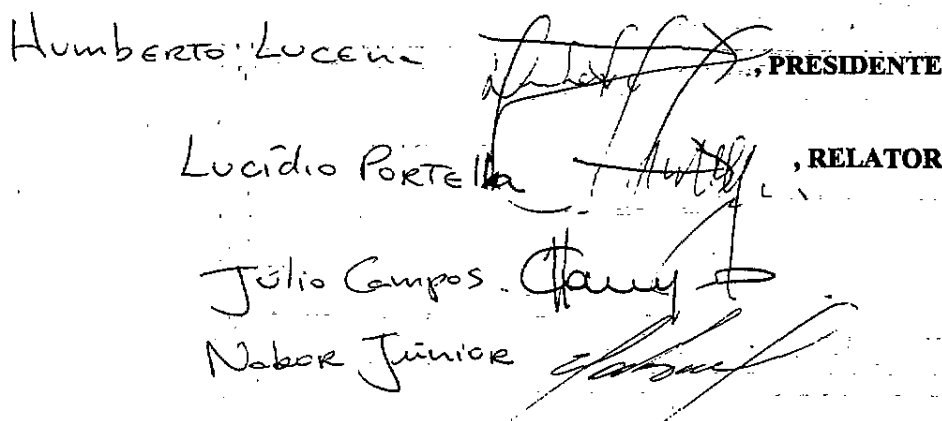 Humberto Lucena , PRESIDENTE
Lucídio Portella , RELATOR
Júlio Campos
Nabor Júnior